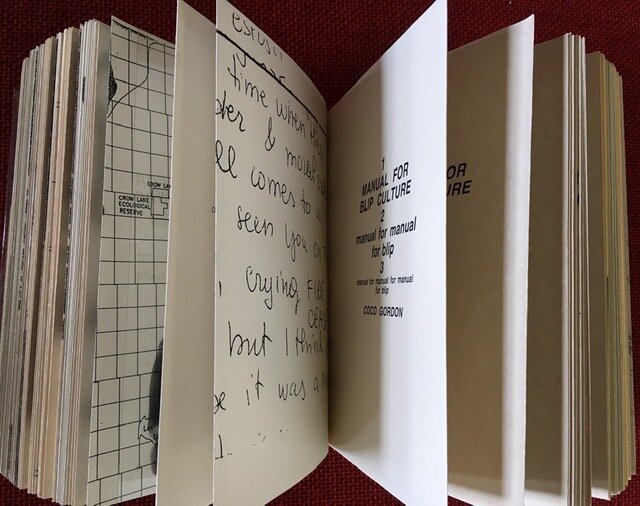 CROW LA
CROW LAKE
ECOLOGICAL
RESERVE
time when
der & moral
ll comes to
seen you on
, crying FIRE
but I think
e it was a
1
MANUAL FOR
BLIP CULTURE
2
manual for manual
for blip
3
manual for manual for manual
for blip
COCO GORDON
OR
URE